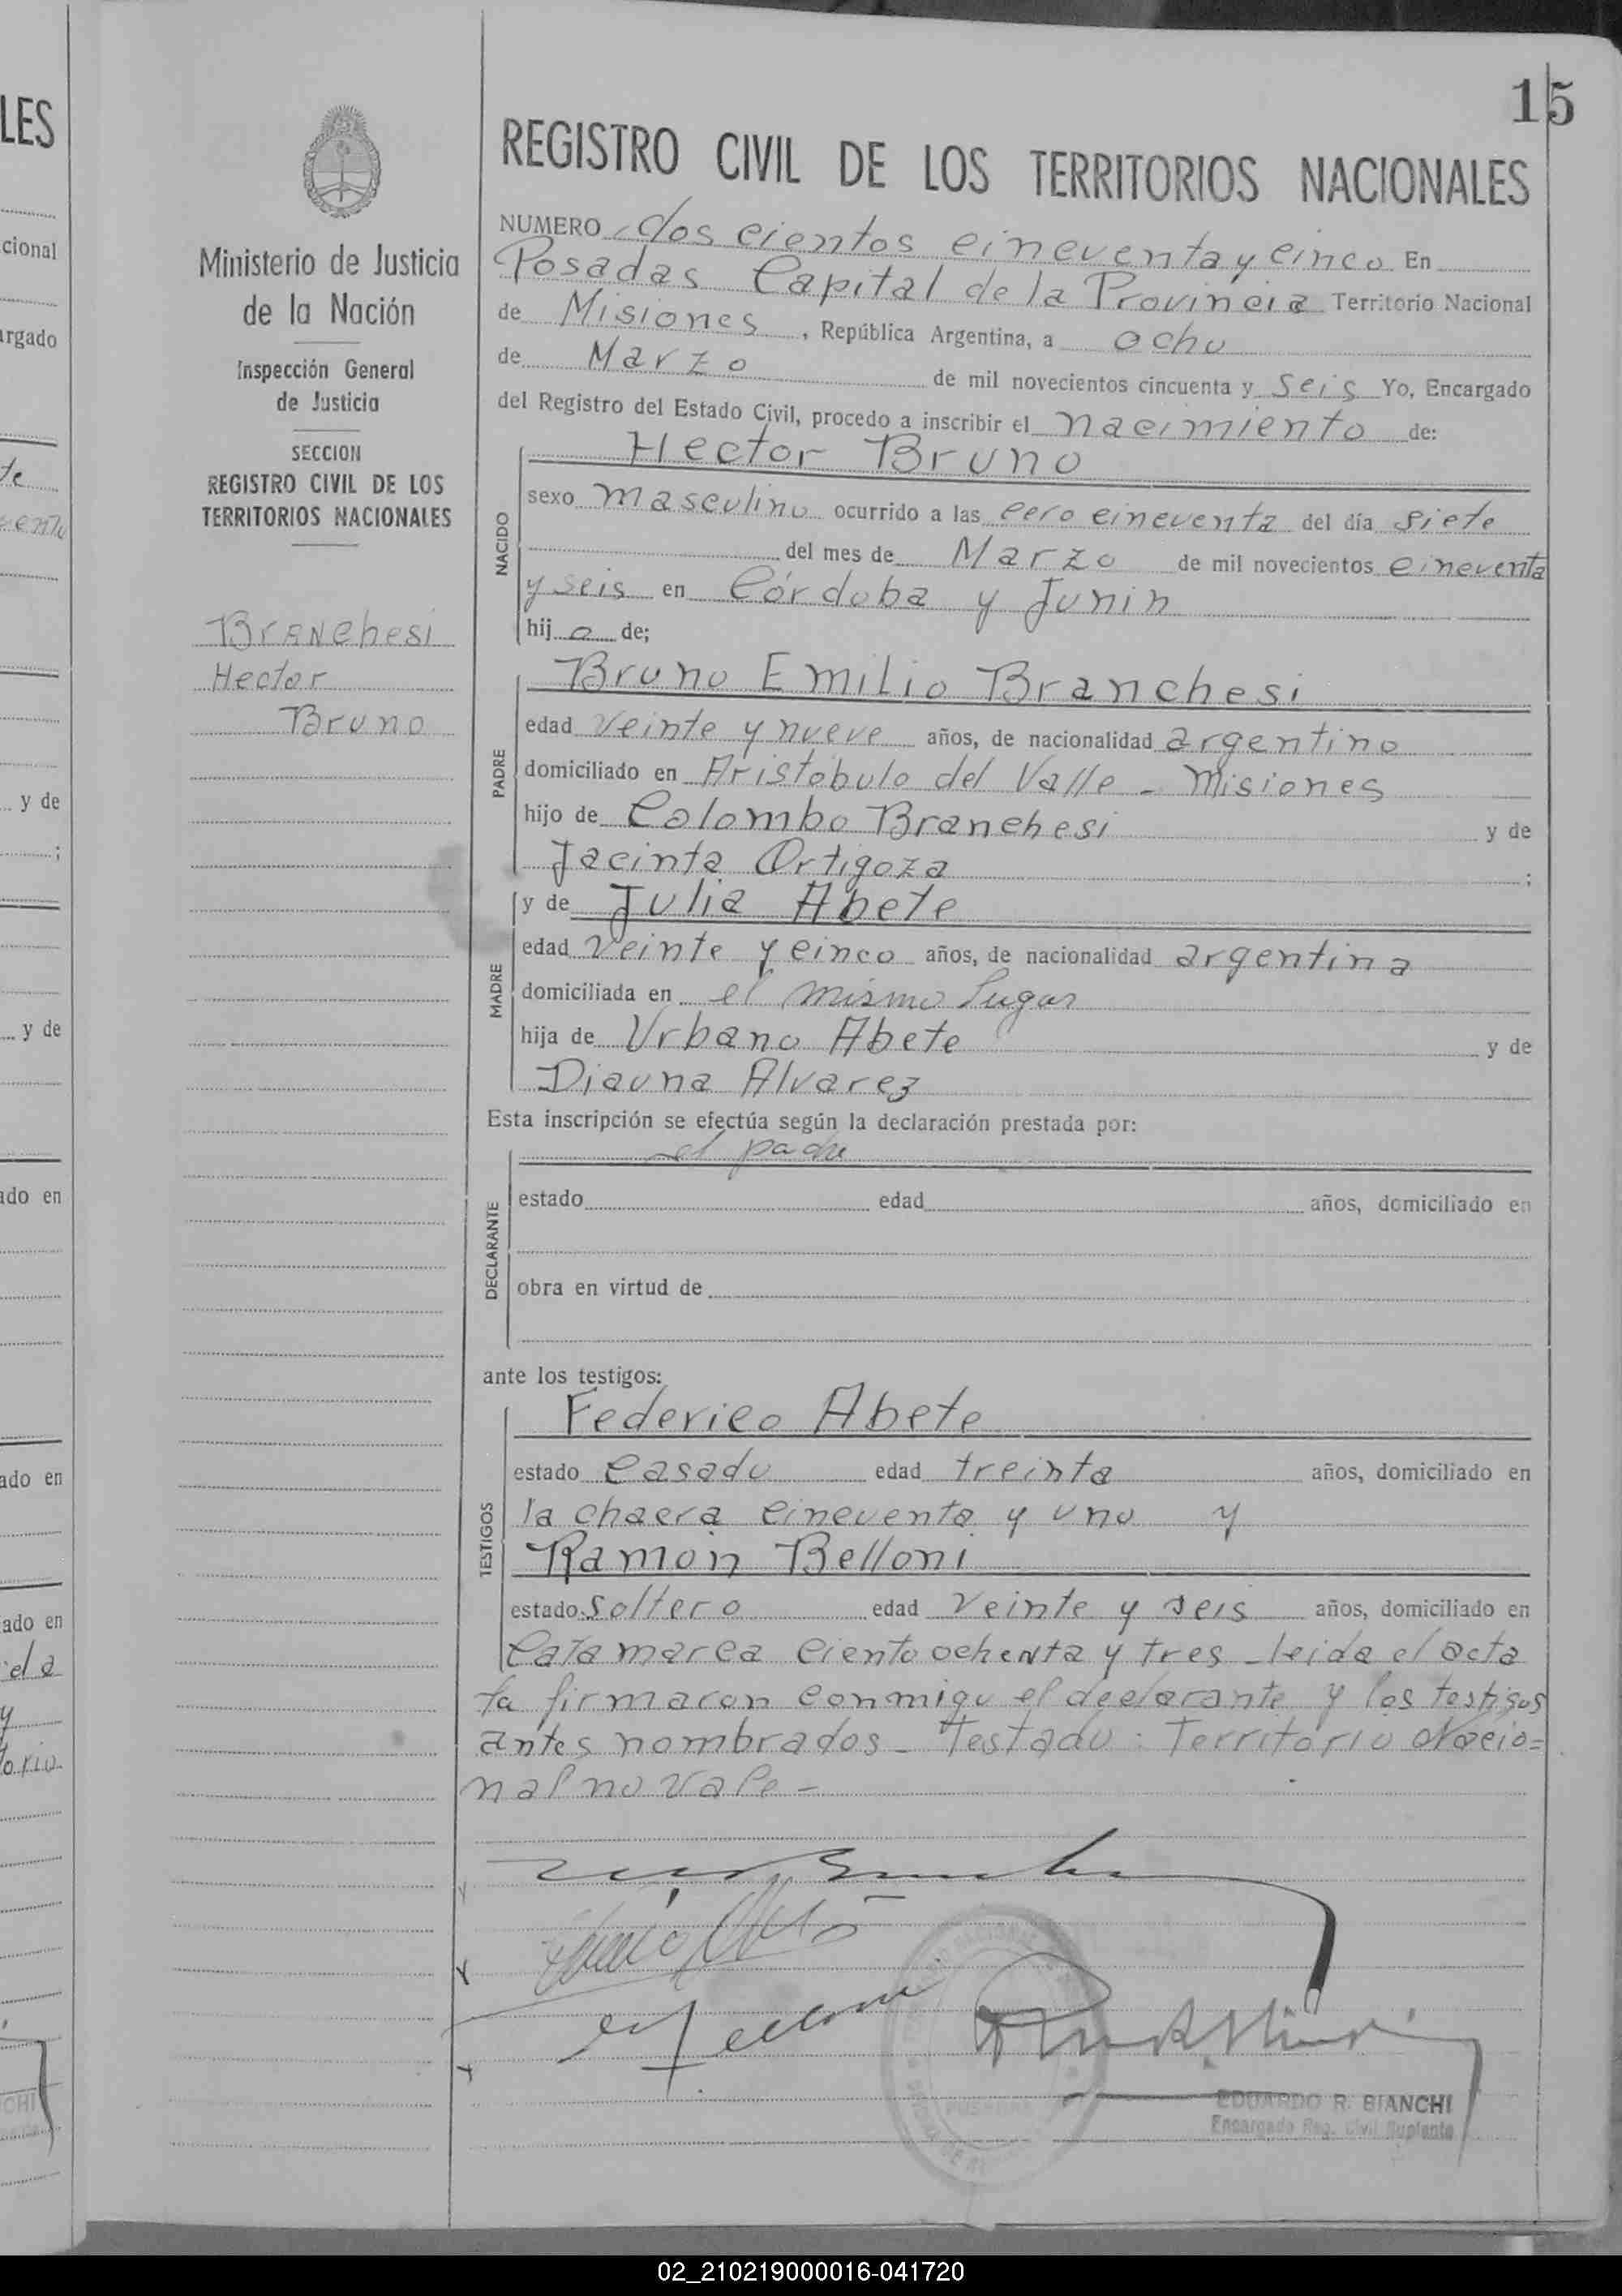 15
LES
cional
argado
y de
y de
ado en
ado en
ado en
Ministerio de Justicia
de la Nación
Inspección General
de Justicia
SECCION
REGISTRO CIVIL DE LOS
TERRITORIOS NACIONALES
Branchesi
Hector
Bruno
REGISTRO CIVIL DE LOS TERRITORIOS NACIONALES
NUMERO dos cientos cincuenta y cinco En
Posadas Capital de la Provincia Territorio Nacional
de Misiones, República Argentina, a ocho
de Marzo de mil novecientos cincuenta y seis Yo, Encargado
del Registro del Estado Civil, procedo a inscribir el nacimiento de:
Hector Bruno
NACIDO
sexo masculino ocurrido a las cero cincuenta del día siete
del mes de Marzo de mil novecientos cincuenta
y seis en Córdoba y Junin
hij o de;
Bruno Emilio Branchesi
PADRE
edad veinte y nueve años, de nacionalidad argentino
domiciliado en Aristóbulo del Valle - Misiones
hijo de Colombo Branchesi y de
Jacinta Ortigoza ;
y de Julia Abete
MADRE
edad veinte y cinco años, de nacionalidad argentina
domiciliada en el mismo lugar
hija de Urbano Abete y de
Diauna Alvarez
Esta inscripción se efectúa según la declaración prestada por:
el padre
DECLARANTE
estado edad años, domiciliado en
obra en virtud de
ante los testigos:
Federico Abete
TESTIGOS
estado casado edad treinta años, domiciliado en
la chacra cincuenta y uno y
Ramón Belloni
estado soltero edad veinte y seis años, domiciliado en
Catamarca ciento ochenta y tres - leida el acta
la firmaron conmigo el declarante y los testigos
antes nombrados - Testado: Territorio Nacio=
nal no vale -
EDUARDO R. BIANCHI
Encargado Reg. Civil Suplente
02_210219000016-041720